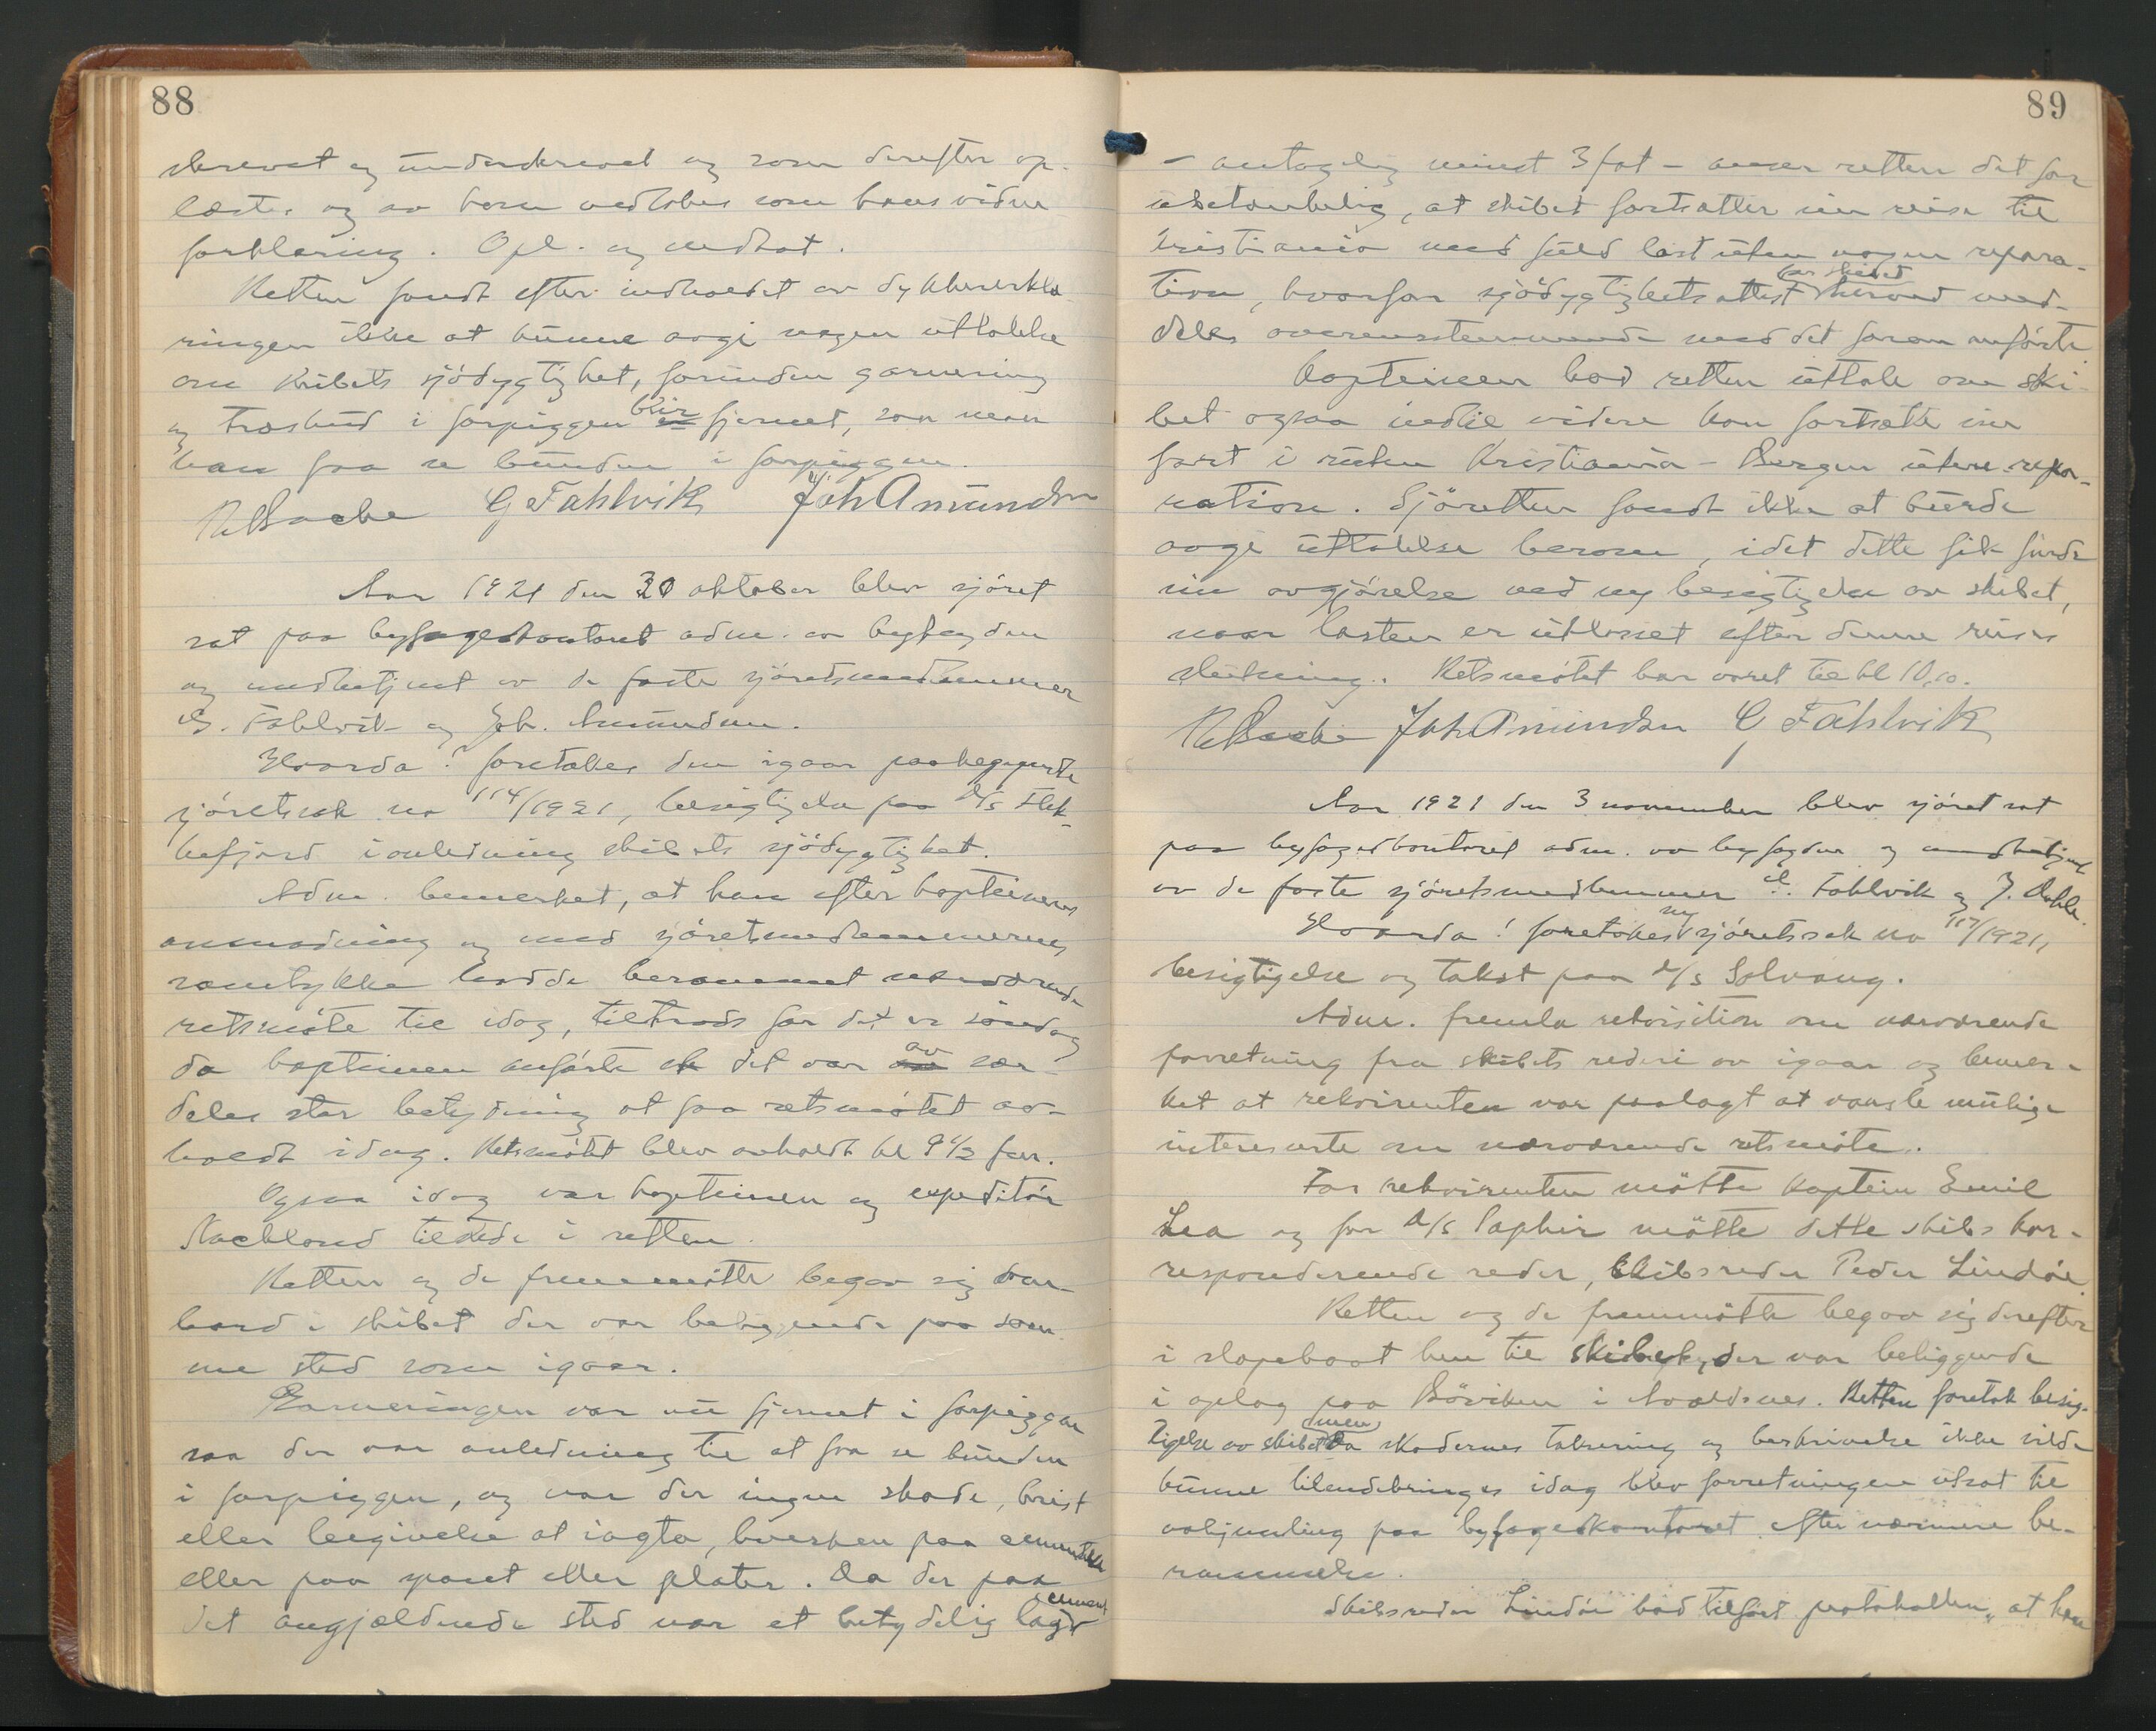 88
skrevet og underskrevet og som derefter op-
læstes og av ham vedtokes som hans vidne
forklaring. Opl. og vedtat.
Retten fandt efter indholdet av dykkererklæ-
ringen ikke at kunne avgi nogen uttalelse
om skibets sjødygtighet, forinden garnering
og træshud i forpiggen blir fjernet, saa man
kan faa se bunden i forpiggen.
G Fahlvik Joh Amundsen
Aar 1921 den 30 oktober blev sjøret
sat paa byfogedkontoret adm. av byfogden
og medbetjent av de faste sjøretsmedlemmer
G. Fahlvik og Joh. Amundsen.
Hvorda! foretokes den igaar paabegyndte
sjøretssak no 114/1921, besigtigelse paa d/s Flek-
kefjord i anledning skibets sjødygtighet.
Adm. bemerket, at han efter kapteinens
anmodning og med sjøretsmedlemmernes
samtykke hadde berammet nærværende
retsmøte til idag, tiltrods for det er søndag
da kapteinen anførte at det var av sær-
deles stor betydning at faa retsmøtet av-
holdt idag. Retsmøtet blev avholdt kl 9 1/2 fm.
Ogsaa idag var kapteinen og expeditør
Stackland tilstede i retten.
Retten og de fremmøtte begav sig om-
bord i skibet der var beliggende paa sam-
me sted som igaar.
Garneringen var nu fjernet i forpiggen
saa der var anledning til at faa se bunden
i forpiggen, og var der ingen skade, brist
eller bøigivelse at iagta, hverken paa cementen
eller paa spant eller plater. Da der paa
det angjældende sted var et betydelig lag cement
89
– antagelig mindst 3 fot – anser retten det for
ubetænkelig, at skibet fortsætter sin reise til
Kristiania med fuld last uten nogen repara-
tion, hvorfor sjødygtighetsattest for skibet herved med-
deles overensstemmende med det foran anførte.
Kapteinen bad retten uttale om ski-
bet ogsaa indtil videre kan fortsætte sin
fart i ruten Kristiania – Bergen uten repa-
ration. Sjøretten fandt ikke at burde
avgi uttalelse herom, idet dette fik finde
sin avgjørelse ved ny besigtigelse av skibet,
naar lasten er utlosset efter denne reises
slutning. Retsmøtet har varet til kl 10,10.
Joh Amundsen G Fahlvik
Aar 1921 den 3 november blev sjøret sat
paa byfogedkontoret adm. av byfogden og medbetjent
av de faste sjøretsmedlemmer G. Fahlvik og J. Dahle.
Hvorda! foretokes ny sjøretssak no 117/1921,
besigtigelse og takst paa d/s Solvang.
Adm. fremla rekvisition om nærværende
forretning fra skibets rederi av igaar og bemer-
ket at rekvirenten var paalagt at varsle mulige
interesserte om nærværende retsmøte.
For rekvirenten møtte kaptein Emil
Lea og for d/s Saphir møtte dette skibs kor-
responderende reder, skibsreder Peder Lindøe.
Retten og de fremmøtte begav sig derefter
i slæpebaat hen til skibet, der var beliggende
i oplag paa Bøviken i Avaldsnes. Retten foretok besig-
tigelse av skibet men da skadernes taksering og beskrivelse ikke vilde
kunne tilendebringes idag blev forretningen utsat til
avhjemling paa byfogedkontoret efter nærmere be-
rammelse.
Skibsreder Lindøe bad tilført protokollen, at han